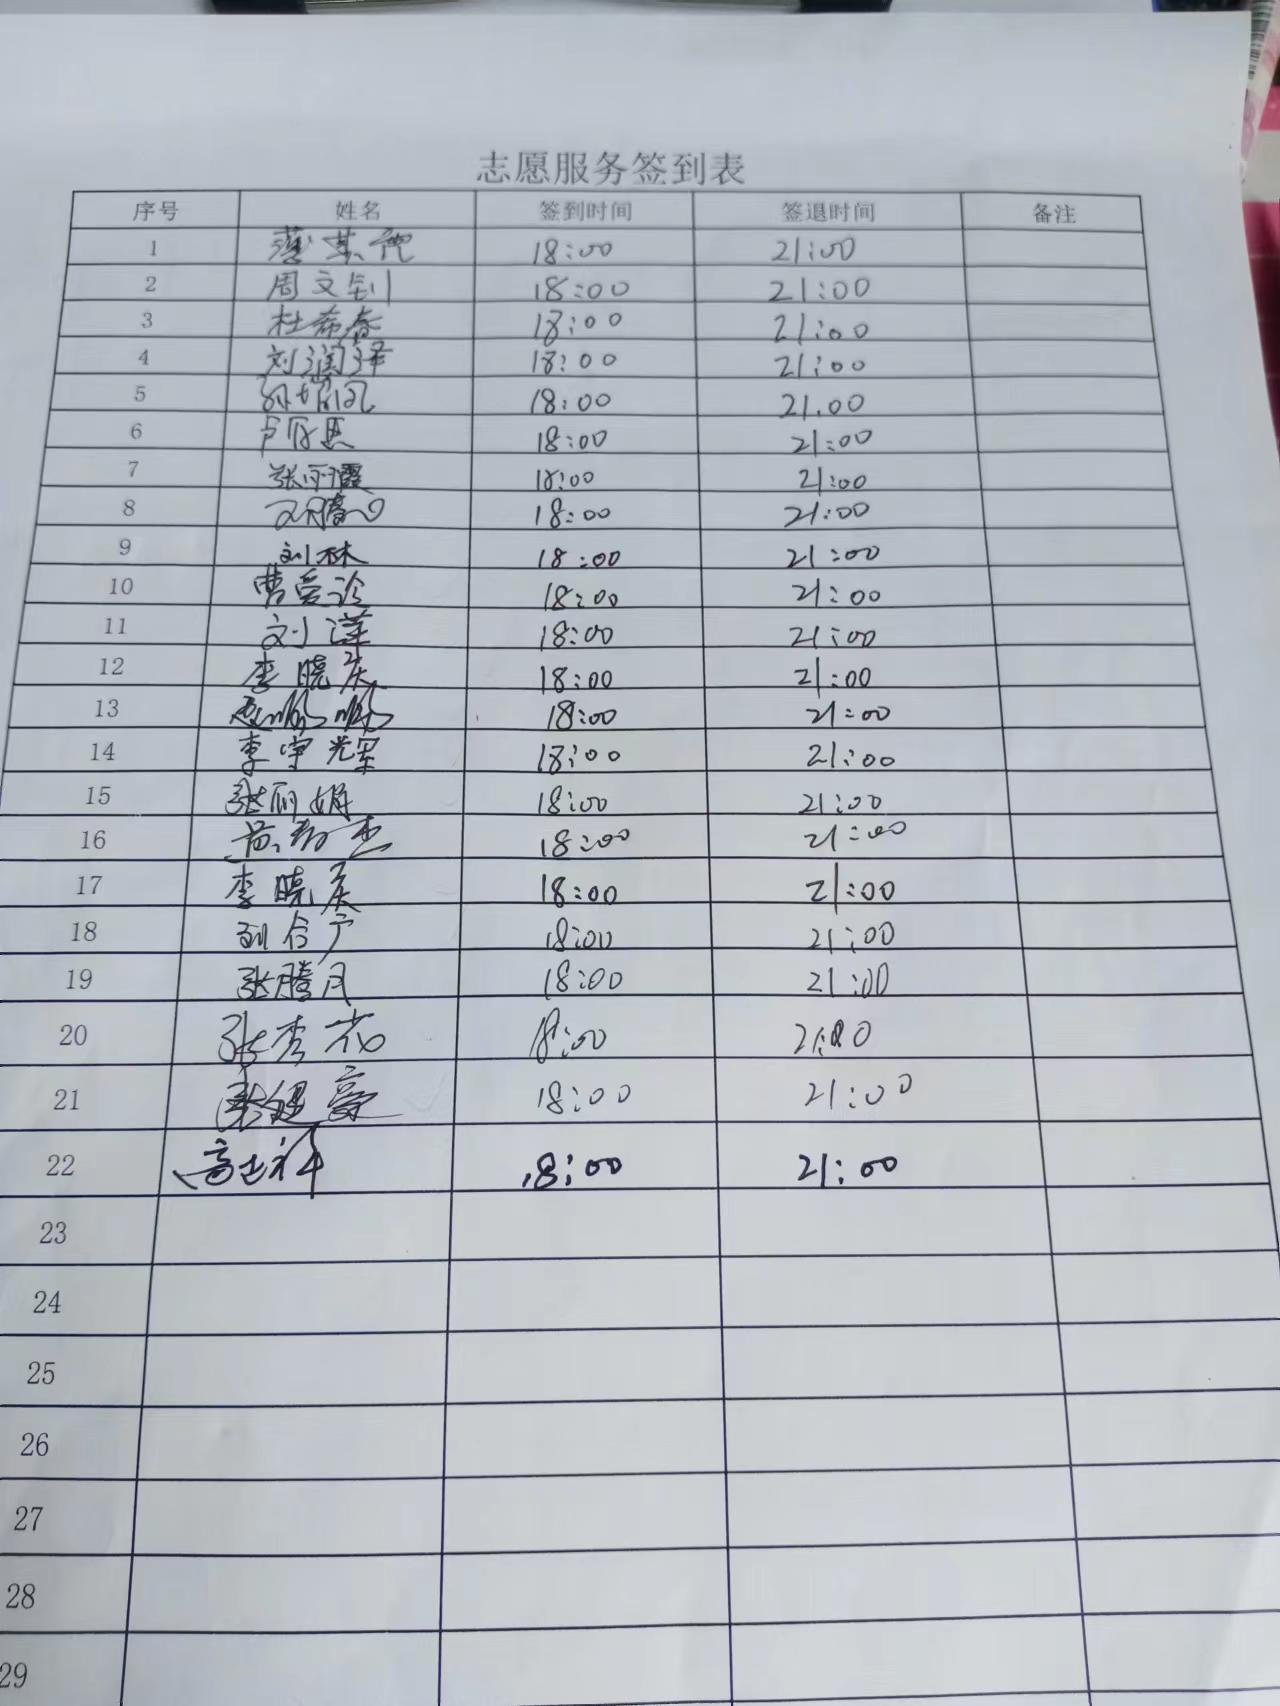 志愿服务签到表
序号 姓名 签到时间 签退时间 备注
1 18:00 21:00
2 周文钊 18:00 21:00
3 杜希春 18:00 21:00
4 刘润泽 18:00 21:00
5 18:00 21.00
6 18:00 21:00
7 张雨霞 18:00 21:00
8 18:00 21:00
9 刘林 18:00 21:00
10 曹爱玲 18:00 21:00
11 刘洋 18:00 21:00
12 李晓庆 18:00 21:00
13 18:00 21:00
14 李宇光 18:00 21:00
15 张丽娟 18:00 21:00
16 18:00 21:00
17 李晓庆 18:00 21:00
18 18:00 21:00
19 张腾月 18:00 21:00
20 张秀花 18:00 21:00
21 18:00 21:00
22 高士祥 18:00 21:00
23
24
25
26
27
28
29